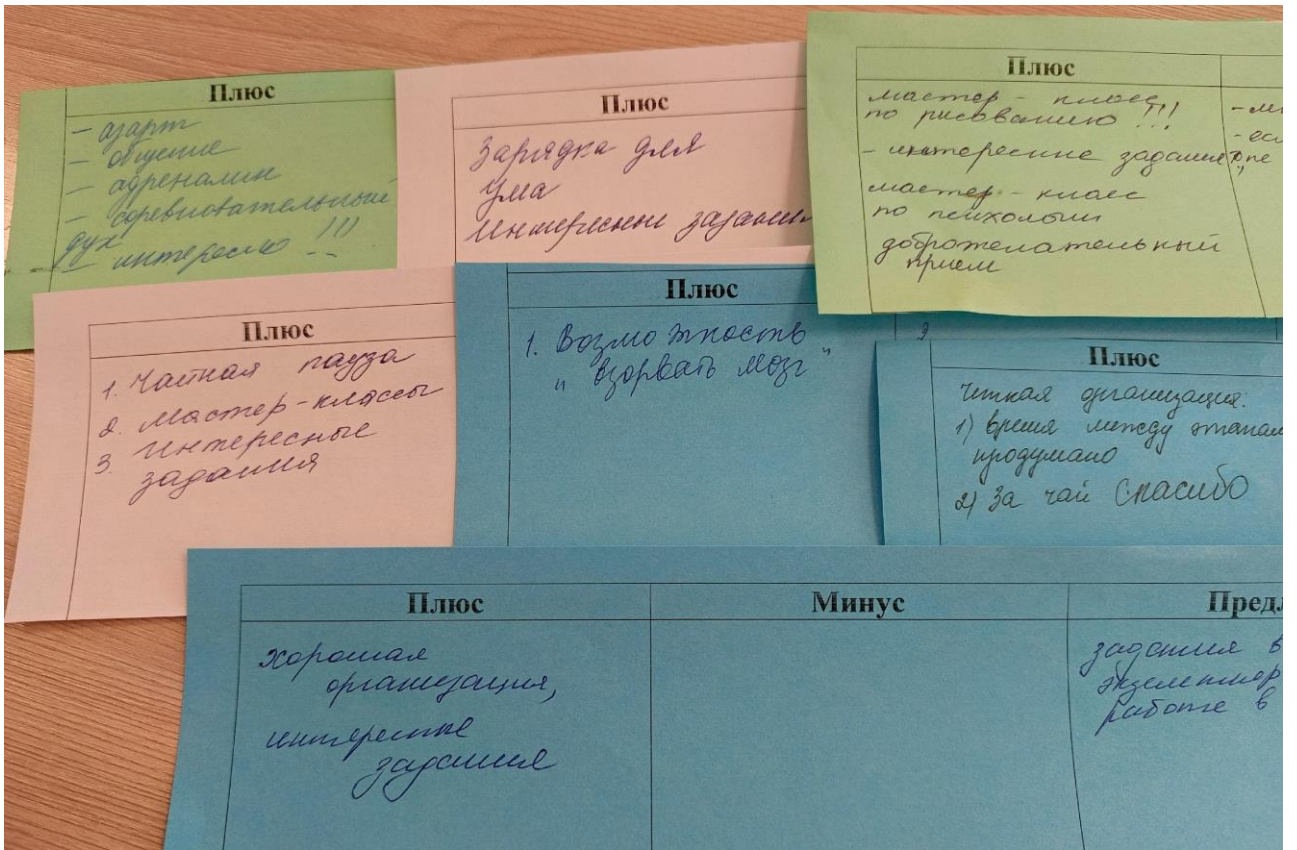 Плюс
- азарт
- общение
- адреналин
- соревновательный
дух
- интересно !!!
Плюс
Зарядка для
ума
Интересные задания
Плюс
мастер - класс
по рисованию !!!
- интересные задания
мастер - класс
по психологии
доброжелательный
прием
- ес
Плюс
1. Чайная пауза
2. Мастер-классы
3. Интересные
задания
Плюс
1. Возможность
"взорвать мозг"
2
Плюс
Четкая организация.
1) время между этапам
продумано
2) За чай Спасибо
Плюс
Минус
Пред
хорошая
организация,
интересные
задания
задания в
экземпляр
работе в